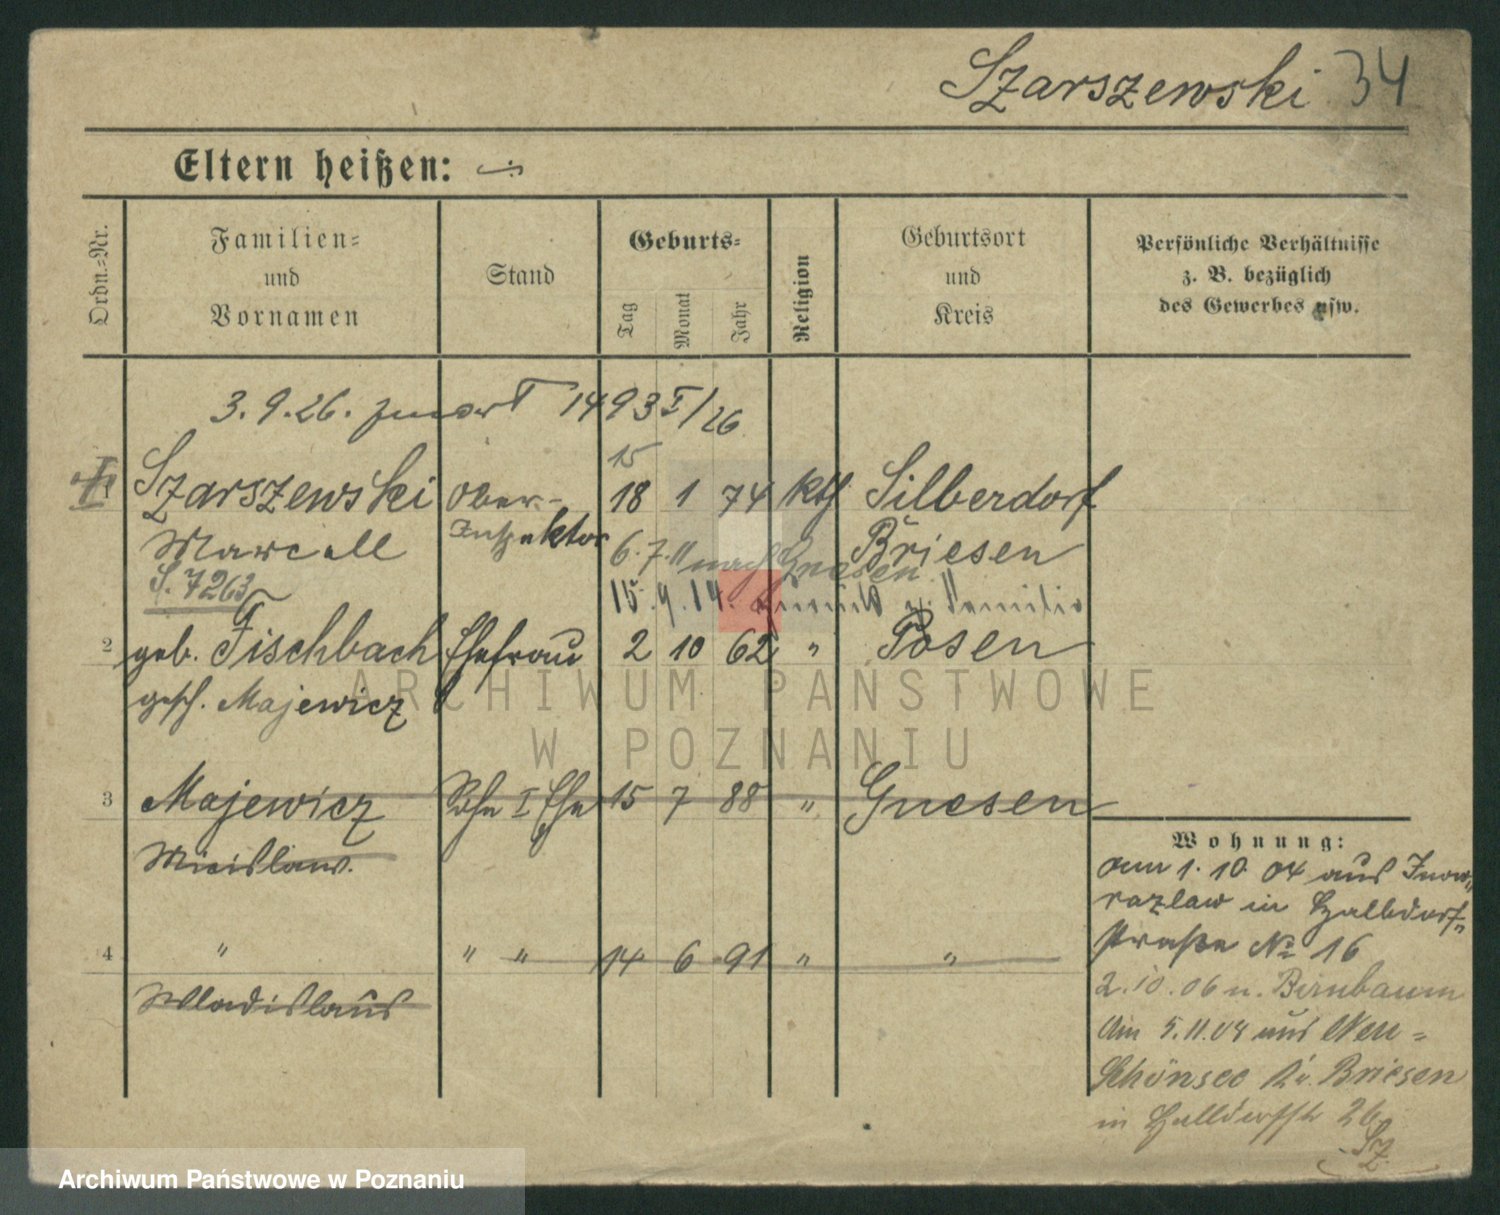 Szarszewski 34
Eltern heißen:
Ordn.-Nr.
Familien-
und
Vornamen
Stand
Geburts-
Tag
Monat
Jahr
Religion
Geburtsort
und
Kreis
Persönliche Verhältnisse
z. B. bezüglich
des Gewerbes usw.
3. 9. 26. 1493 I/26
15
Szarszewski Ober- 18 1 74 kth Silberdorf
Marcell Inspektor Briesen
6. 7. 11 nach Gnesen
S. 7263
15. 9. 14. Zurück Familie
2 geb. Fischbach Ehefrau 2 10 62 " Posen
gesch. Majewicz
3 Majewicz Sohn I Ehe 15 7 88 " Gnesen
Miecislaus.
4 " " " 14 6 91 " "
Wladislaus
Wohnung:
am 1. 10 04 aus Inow-
razlaw in Halldorf-
straße No 16
2. 10. 06 n. Birnbaum
Am 5. 11. 08 aus Neu-
Schönsee Kr. Briesen
in Halldorfstr 26
Sz
ARCHIWUM PAŃSTWOWE
W POZNANIU
Archiwum Państwowe w Poznaniu